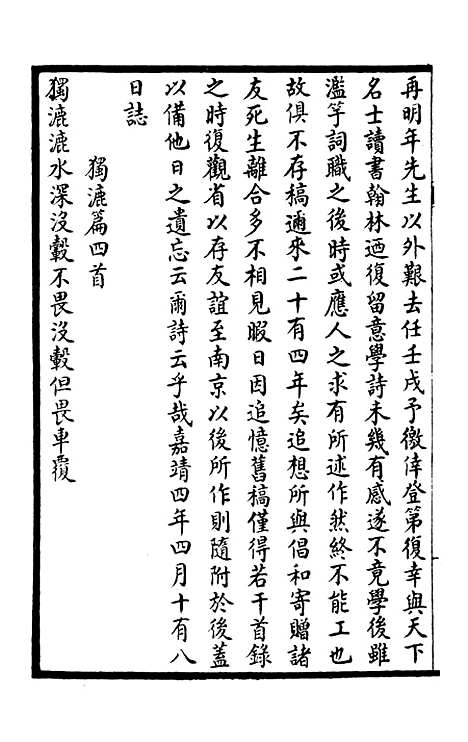 再明年先生以外艱去任壬戌予徼倖登第復幸與天下
名士讀書翰林迺復留意學詩未幾有感遂不竟學後雖
濫竽詞職之後時或應人之求有所述作然終不能工也
故俱不存稿邇來二十有四年矣追想所與倡和寄贈諸
友死生離合多不相見暇日因追憶舊稿僅得若干首錄
之時復觀省以存友誼至南京以後所作則隨附於後蓋
以備他日之遺忘云爾詩云乎哉嘉靖四年四月十有八
日誌
獨漉篇四首
獨漉漉水深沒轂不畏沒轂但畏車覆